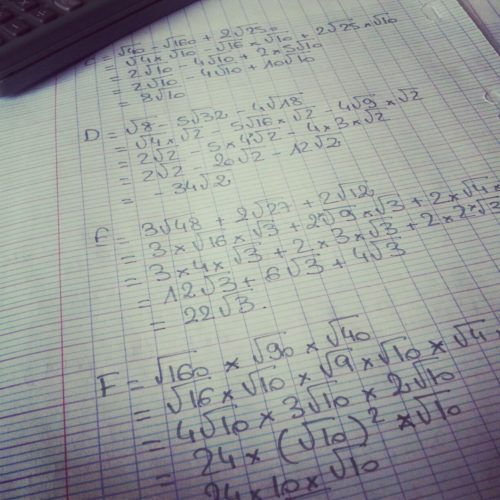 C = √40 - √160 + 2√250
= √4 × √10 - √16 × √10 + 2√25 × √10
= 2√10 - 4√10 + 2 × 5√10
= 2√10 - 4√10 + 10√10
= 8√10
D = √8 - 5√32 - 4√18
= √4 × √2 - 5√16 × √2 - 4√9 × √2
= 2√2 - 5 × 4√2 - 4 × 3 × √2
= 2√2 - 20√2 - 12√2
= - 34√2
E = 3√48 + 2√27 + 2√12
= 3 × √16 × √3 + 2√9 × √3 + 2 × √4
= 3 × 4 × √3 + 2 × 3 × √3 + 2 × 2 × √3
= 12√3 + 6√3 + 4√3
= 22√3.
F = √160 × √90 × √40
= √16 × √10 × √9 × √10 × √4
= 4√10 × 3√10 × 2√10
= 24 × (√10)² × √10
24 × 10 × √10